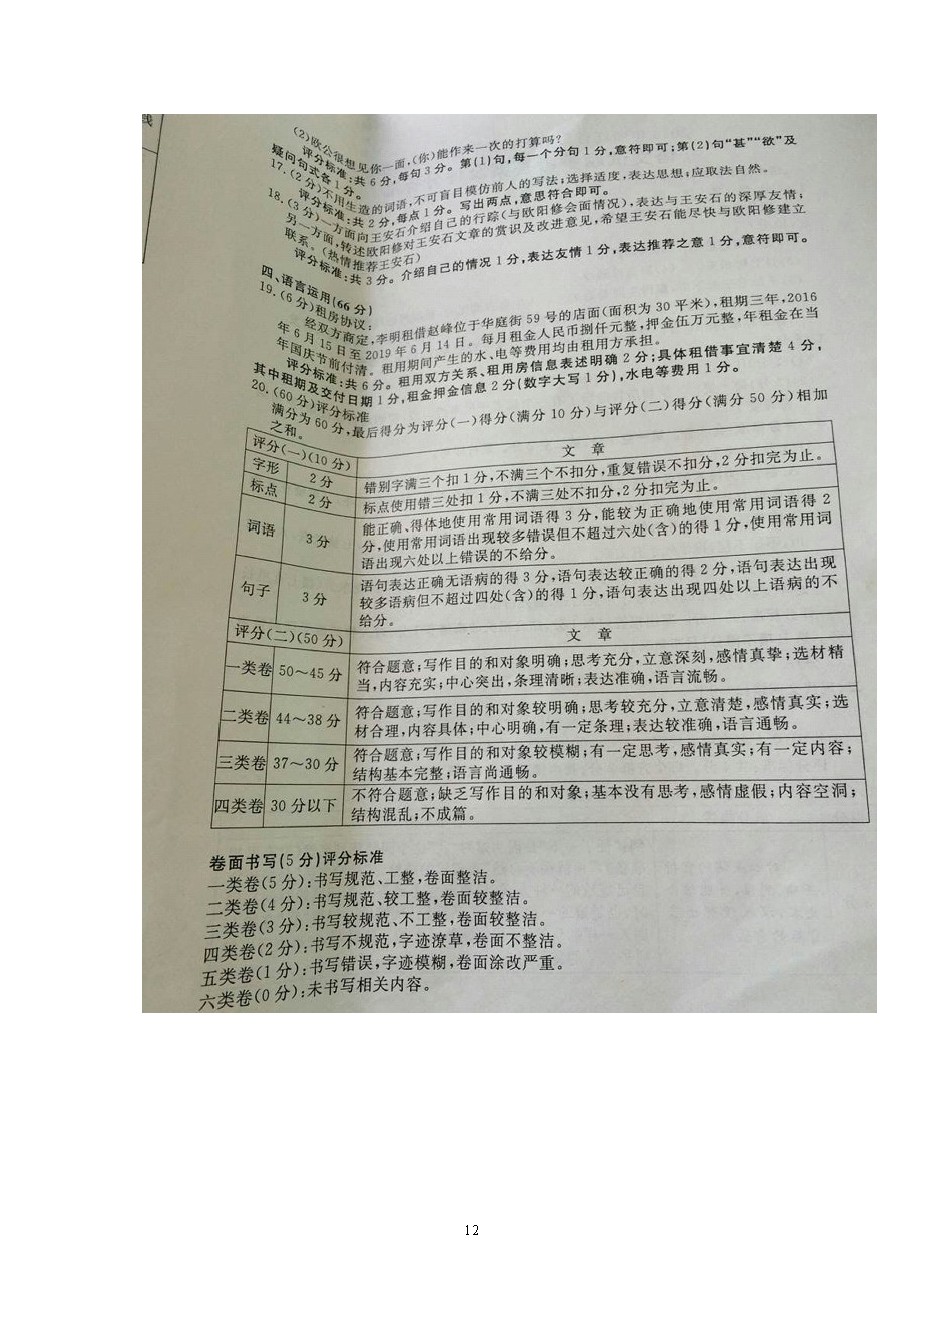 线
(2)欧公很想见你一面,(你)能作来一次的打算吗?
评分标准:共6分,每句3分。第(1)句,每一个分句1分,意符即可;第(2)句“甚”“欲”及
疑问句式各1分。
17.(2分)不用生造的词语,不可盲目模仿前人的写法;选择适度,表达思想;应取法自然。
评分标准:共2分,每点1分。写出两点,意思符合即可。
18.(3分)一方面向王安石介绍自己的行踪(与欧阳修会面情况),表达与王安石的深厚友情;
另一方面,转述欧阳修对王安石文章的赏识及改进意见,希望王安石能尽快与欧阳修建立
联系。(热情推荐王安石)
评分标准:共3分。介绍自己的情况1分,表达友情1分,表达推荐之意1分,意符即可。
四、语言运用(66分)
19.(6分)租房协议:
经双方商定,李明租借赵峰位于华庭街59号的店面(面积为30平米),租期三年,2016
年6月15日至2019年6月14日。每月租金人民币捌仟元整,押金伍万元整,年租金在当
年国庆节前付清。租用期间产生的水、电等费用均由租用方承担。
评分标准:共6分。租用双方关系、租用房信息表述明确2分;具体租借事宜清楚4分,
其中租期及交付日期1分,租金押金信息2分(数字大写1分),水电等费用1分。
20.(60分)评分标准
满分为60分,最后得分为评分(一)得分(满分10分)与评分(二)得分(满分50分)相加
之和。
评分(一)(10分) 文章
字形 2分 错别字满三个扣1分,不满三个不扣分,重复错误不扣分,2分扣完为止。
标点 2分 标点使用错三处扣1分,不满三处不扣分,2分扣完为止。
词语 3分 能正确、得体地使用常用词语得3分,能较为正确地使用常用词语得2
分,使用常用词语出现较多错误但不超过六处(含)的得1分,使用常用词
语出现六处以上错误的不给分。
句子 3分 语句表达正确无语病的得3分,语句表达较正确的得2分,语句表达出现
较多语病但不超过四处(含)的得1分,语句表达出现四处以上语病的不
给分。
评分(二)(50分) 文章
一类卷 50～45分 符合题意;写作目的和对象明确;思考充分,立意深刻,感情真挚;选材精
当,内容充实;中心突出,条理清晰;表达准确,语言流畅。
二类卷 44～38分 符合题意;写作目的和对象较明确;思考较充分,立意清楚,感情真实;选
材合理,内容具体;中心明确,有一定条理;表达较准确,语言通畅。
三类卷 37～30分 符合题意;写作目的和对象较模糊;有一定思考,感情真实;有一定内容;
结构基本完整;语言尚通畅。
四类卷 30分以下 不符合题意;缺乏写作目的和对象;基本没有思考,感情虚假;内容空洞;
结构混乱;不成篇。
卷面书写(5分)评分标准
一类卷(5分):书写规范、工整,卷面整洁。
二类卷(4分):书写规范、较工整,卷面较整洁。
三类卷(3分):书写较规范、不工整,卷面较整洁。
四类卷(2分):书写不规范,字迹潦草,卷面不整洁。
五类卷(1分):书写错误,字迹模糊,卷面涂改严重。
六类卷(0分):未书写相关内容。
12